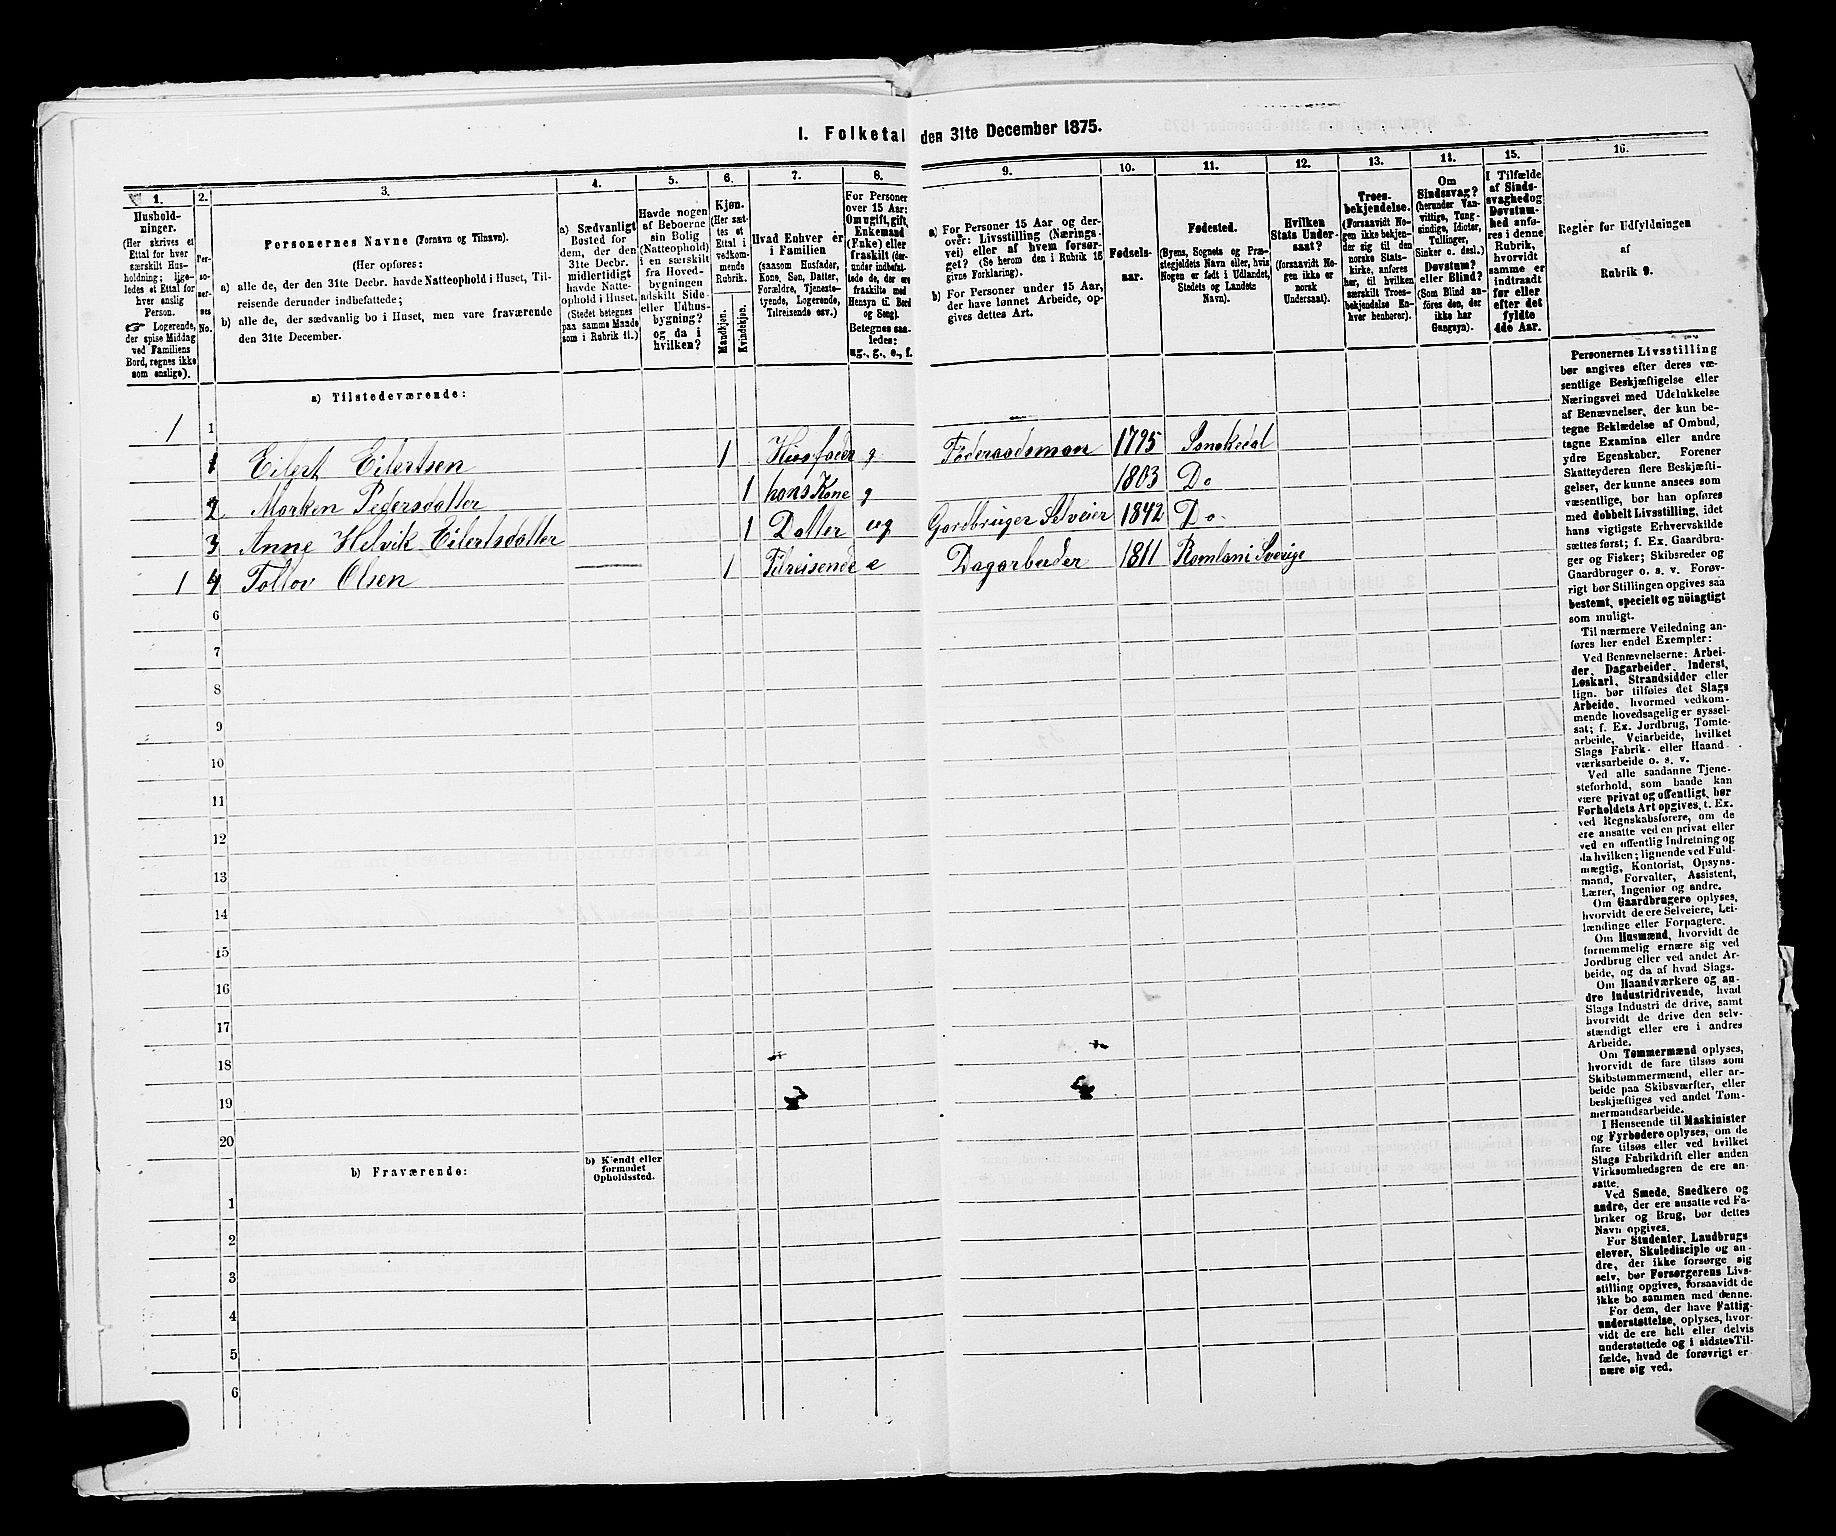 I. Folketal den 31te December 1875.
1.
Hushold-
ninger.
(Her skrives et
Ettal for hver
særskilt Hus-
holdning; lige-
ledes et Ettal for
hver enslig
Person.
☞ Logerende,
der spise Middag
ved Familiens
Bord, regnes ikke
som enslige).
2.
Per-
so-
ner-
nes
No.
3.
Personernes Navne (Fornavn og Tilnavn).
(Her opføres:
a) alle de, der den 31te Decbr. havde Natteophold i Huset, Til-
reisende derunder indbefattede;
b) alle de, der sædvanlig bo i Huset, men vare fraværende
den 31te December.
4.
a) Sædvanligt
Bosted for
dem, der den
31te Decbr.
midlertidigt
havde Natte-
ophold i Huset.
(Stedet betegnes
paa samme Maade
som i Rubrik 11.)
5.
Havde nogen
af Beboerne
sin Bolig
(Natteophold)
i en særskilt
fra Hoved-
bygningen
adskilt Side-
eller Udhus-
bygning?
og da i
hvilken?
6.
Kjøn.
(Her sæt-
tes et
Ettal i
vedkom-
mende
Rubrik.
Mandkjøn.
Kvindekjøn.
7.
Hvad Enhver er
i Familien
(saasom Husfader,
Kone, Søn, Datter,
Forældre, Tjeneste-
tyende, Logerende,
Tilreisende osv.)
8.
For Personer
over 15 Aar:
Om ugift, gift,
Enkemand
(Enke) eller
fraskilt (der-
under indbefat-
tede de, der ere
fraskilte med
Hensyn til Bord
og Seng).
Betegnes saa-
ledes:
ug., g., e., f.
9.
a) For Personer 15 Aar og der-
over: Livsstilling (Nærings-
vei) eller af hvem forsør-
get? (Se herom den i Rubrik 16
givne Forklaring).
b) For Personer under 15 Aar,
der have lønnet Arbeide, op-
gives dettes Art.
10.
Fødsels-
aar.
11.
Fødested.
(Byens, Sognets og Præ-
stegjeldets Navn eller, hvis
Nogen er født i Udlandet,
Stedets og Landets
Navn).
12.
Hvilken
Stats Under-
saat?
(forsaavidt No-
gen ikke er
norsk
Undersaat).
13.
Troes-
bekjendelse.
(Forsaavidt No-
gen ikke bekjen-
der sig til den
norske Stats-
kirke, anføres
her, til hvilken
særskilt Troes-
bekjendelse En-
hver henhører).
14.
Om
Sindssvag?
(herunder Van-
vittige, Tung-
sindige, Idioter,
Tullinger,
Sinker o. desl.)
Døvstum?
eller Blind?
(Som Blind an-
føres den, der
ikke har
Gangsyn).
15.
I Tilfælde
af Sinds-
svaghed og
Døvstum-
hed anfø-
res i denne
Rubrik,
hvorvidt
samme er
indtraadt
før eller
efter det
fyldte
4de Aar.
16.
Regler for Udfyldningen
af
Rubrik 9.
a) Tilstedeværende:
1
1
1 Eilert Eilertsen 1 Husfader g Føderaadsman 1795 Sønekedal
2 Marken Pedersdatter 1 hans Kone g 1803 Do
3 Anne Helvik Eilertsdatter 1 Datter ug Gardbruger Selveier 1842 Do
1 4 Tollov Olsen 1 Tilreisende e Dagarbeider 1811 Romlani Sverige
6
7
8
9
10
11
12
13
14
15
16
17
18
19
20
b) Fraværende:
b) Kjendt eller
formodet
Opholdssted.
1
2
3
4
5
6
Personernes Livsstilling
bør angives efter deres væ-
sentlige Beskjæftigelse eller
Næringsvei med Udelukkelse
af Benævnelser, der kun be-
tegne Beklædelse af Ombud,
tagne Examina eller andre
ydre Egenskaber. Forener
Skatteyderen flere Beskjæfti-
gelser, der kunne ansees som
væsentlige, bør han opføres
med dobbelt Livsstilling, idet
hans vigtigste Erhvervskilde
sættes først; f. Ex. Gaardbru-
ger og Fisker; Skibsreder og
Gaardbruger o. s. v. Forøv-
rigt bør Stillingen opgives saa
bestemt, specielt og nöiagtigt
som muligt.
Til nærmere Veiledning an-
føres her endel Exempler:
Ved Benævnelserne: Arbei-
der, Dagarbeider, Inderst,
Løskarl, Strandsidder eller
lign. bør tilføies det Slags
Arbeide, hvormed vedkom-
mende hovedsagelig er syssel-
sat; f. Ex. Jordbrug, Tomte-
arbeide, Veiarbeide, hvilket
Slags Fabrik- eller Haand-
værksarbeide o. s. v.
Ved alle saadanne Tjene-
steforhold, som baade kan
være privat og offentligt, bør
Forholdets Art opgives, t. Ex.
ved Regnskabsførere, om de
ere ansatte ved en privat eller
ved en offentlig Indretning og
da hvilken; lignende ved Fuld-
mægtig, Kontorist, Opsyns-
mand, Forvalter, Assistent,
Lærer, Ingeniør og andre.
Om Gaardbrugere oplyses,
hvorvidt de ere Selveiere, Lei-
lændinge eller Forpagtere.
Om Husmænd, hvorvidt de
fornemmelig ernære sig ved
Jordbrug eller ved andet Ar-
beide, og da af hvad Slags.
Om Haandværkere og an-
dre Industridrivende, hvad
Slags Industri de drive, samt
hvorvidt de drive den selv-
stændigt eller ere i andres
Arbeide.
Om Tømmermænd oplyses,
hvorvidt de fare tilsøs som
Skibstømmermænd, eller ar-
beide paa Skibsværfter, eller
beskjæftiges ved andet Tøm-
mermandsarbeide.
I Henseende til Maskinister
og Fyrbødere oplyses, om de
fare tilsøs eller ved hvilket
Slags Fabrikdrift eller anden
Virksomhedsgren de ere an-
satte.
Ved Smede, Snedkere og
andre, der ere ansatte ved Fa-
briker og Brug, bør dettes
Navn opgives.
For Studenter, Landbrugs-
elever, Skoledisciple og an-
dre, der ikke forsørge sig
selv, bør Forsørgerens Livs-
stilling opgives, forsaavidt de
ikke bo sammen med denne.
For dem, der have Fattig-
understøttelse, oplyses, hvor-
vidt de ere helt eller delvis
understøttede og i sidste Til-
fælde, hvad de forøvrigt er-
nære sig ved.